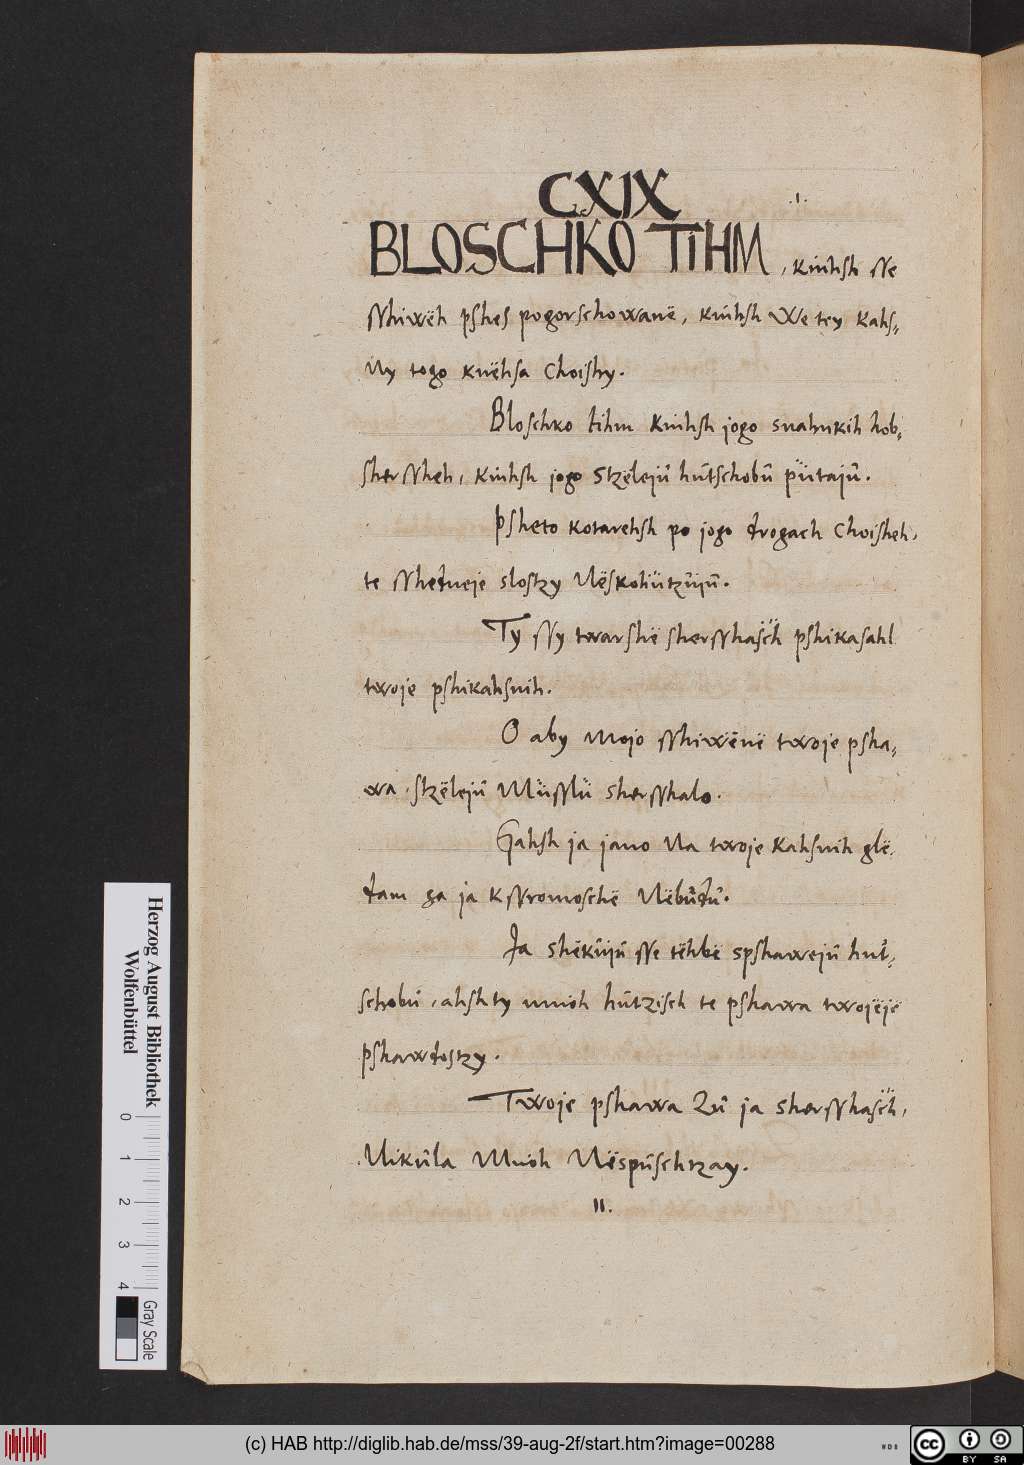 CXIX
.I.
BLOSCHKO TIHM, kiñhsh sse
sshiwëh pshes pogorschowanë, kiñhsh We tey kahs,,
Ny togo knëhsa Choishy.
Bloschko tihm kiñhsh jogo snahnkih hob,,
shersheh, kiñhsh jogo Stzëlejŭ hŭtschobŭ pütajŭ.
Psheto kotarehsh po jogo drogach Choisheh,
te sshedneje slostzy Nëskohützŭjŭ.
Ty ssy twarshë shersshasch pshikasahl
twoje pshikahsnih.
O aby Mojo sshiwënë twoje psha,,
wa Stzëlejŭ Müsslü shersshalo.
Gahsh ja jano Na twoje Kahsnih glë,
dam ga ja k ssromoschë Nëbŭdŭ.
Ja shëkŭjŭ sse tëhbë spshawejŭ hŭt,,
schobŭ, ahsh ty mnoh hŭtzisch te pshawa twojëje
pshawdostzy.
Twoje pshawa Zŭ ja shersshasch,
Nikŭla Mnoh Nëspŭschtzay.
II.
Herzog August Bibliothek
Wolfenbüttel
0 1 2 3 4
Gray Scale
(c) HAB http://diglib.hab.de/mss/39-aug-2f/start.htm?image=00288
WDB
cc BY SA